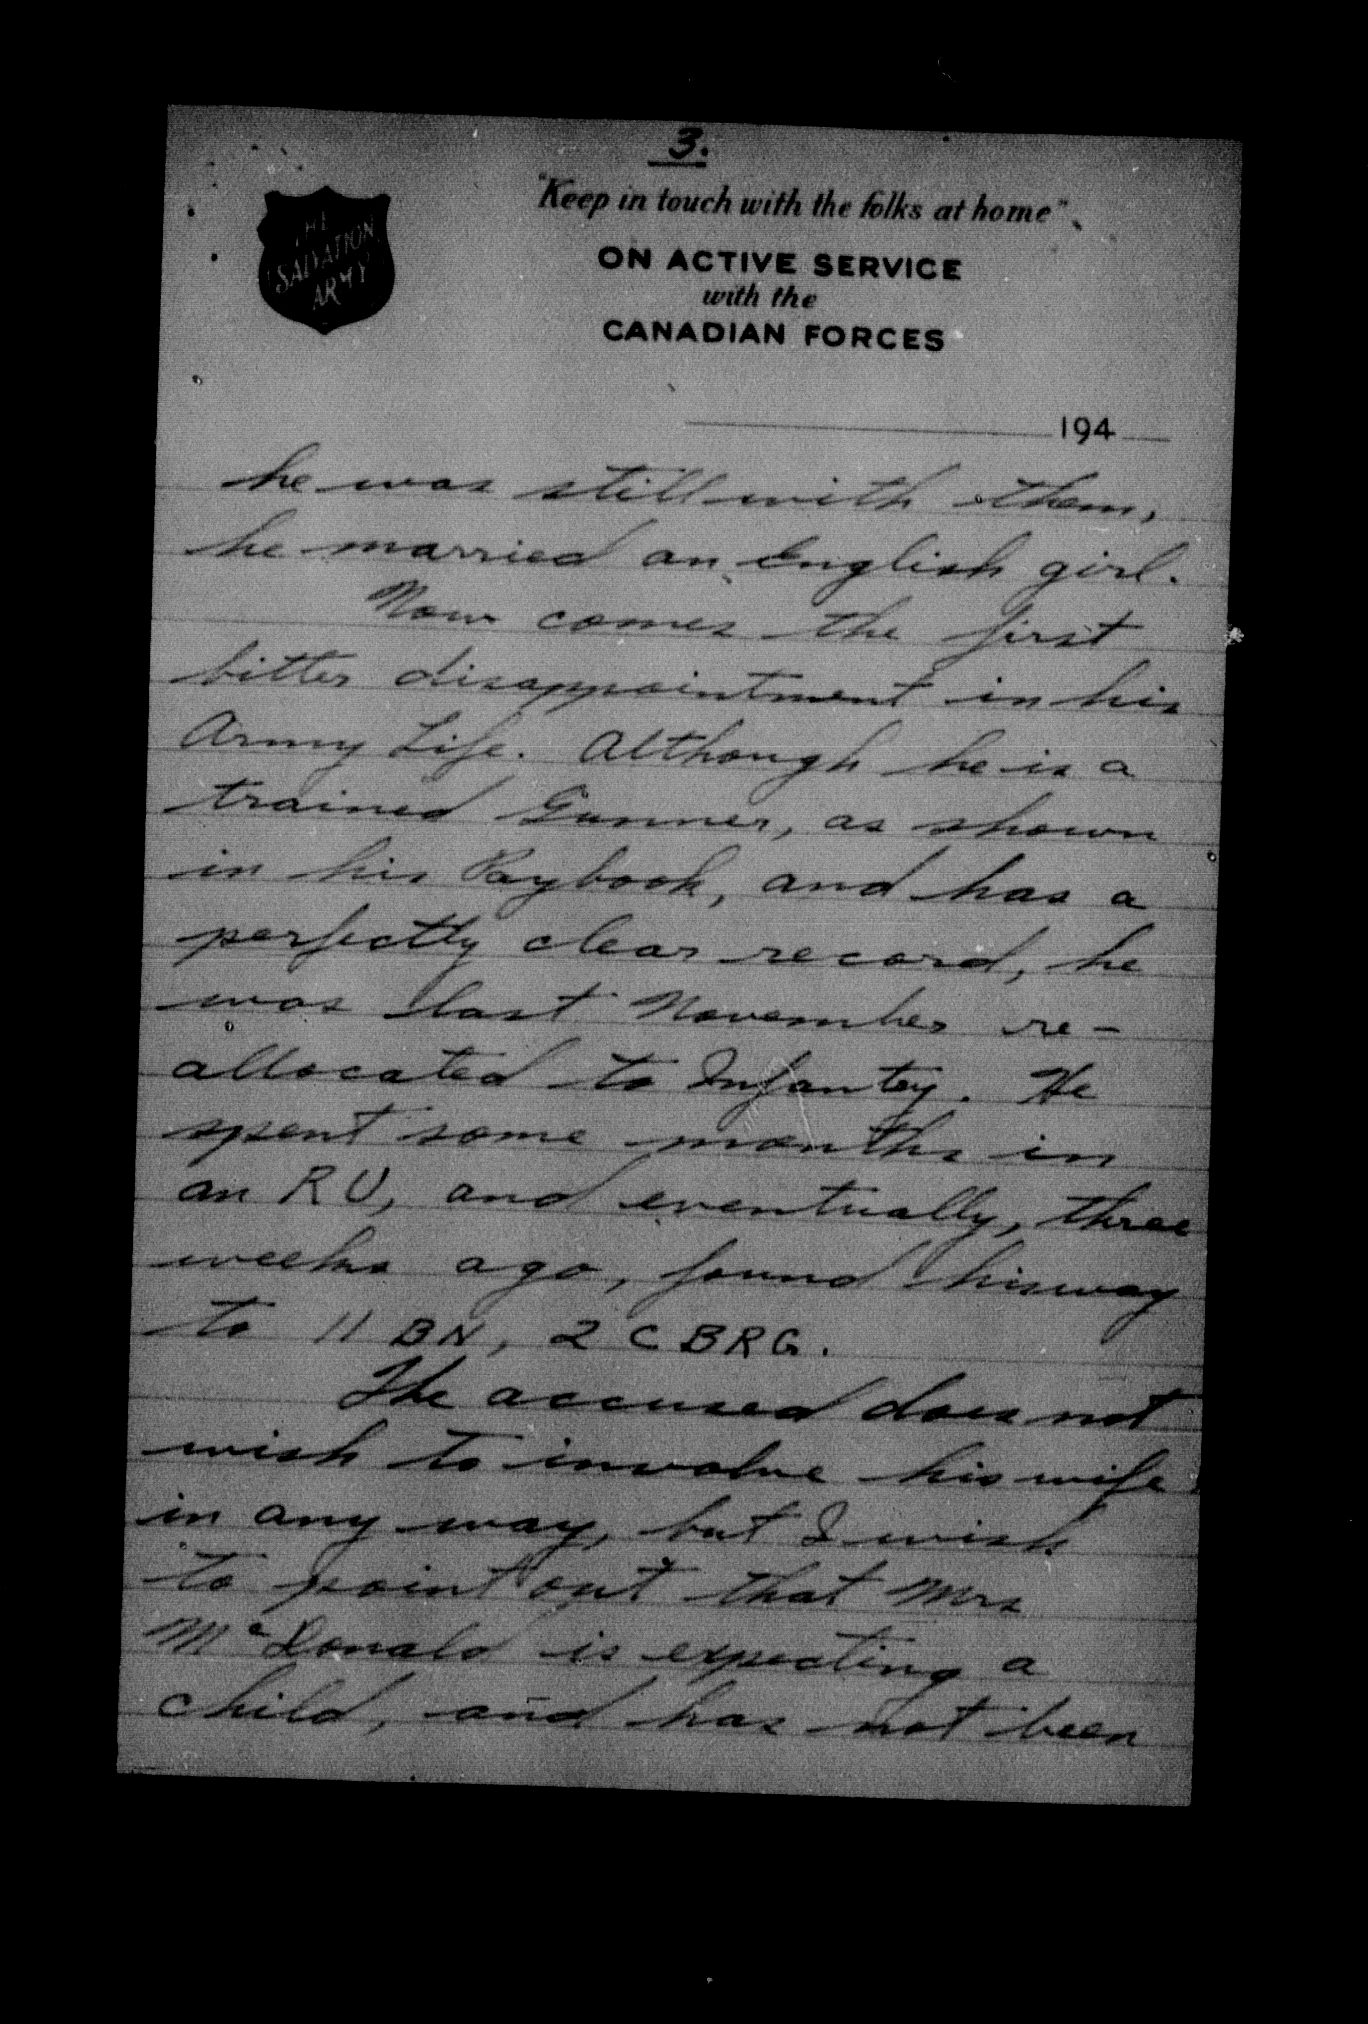 3.
"Keep in touch with the folks at home"
THE
SALVATION
ARMY
ON ACTIVE SERVICE
with the
CANADIAN FORCES
194
he was still with them,
he married an English girl.
Now comes the first
bitter disappointment in his
Army Life. Although he is a
trained Gunner, as shown
in his Paybook, and has a
perfectly clear record, he
was last November re-
allocated to Infantry. He
spent some months in
an RU, and eventually, three
weeks ago, found his way
to 11 BN, 2 CBRG.
The accused does not
wish to involve his wife
in any way, but I wish
to point out that Mrs
McDonald is expecting a
child, and has not been